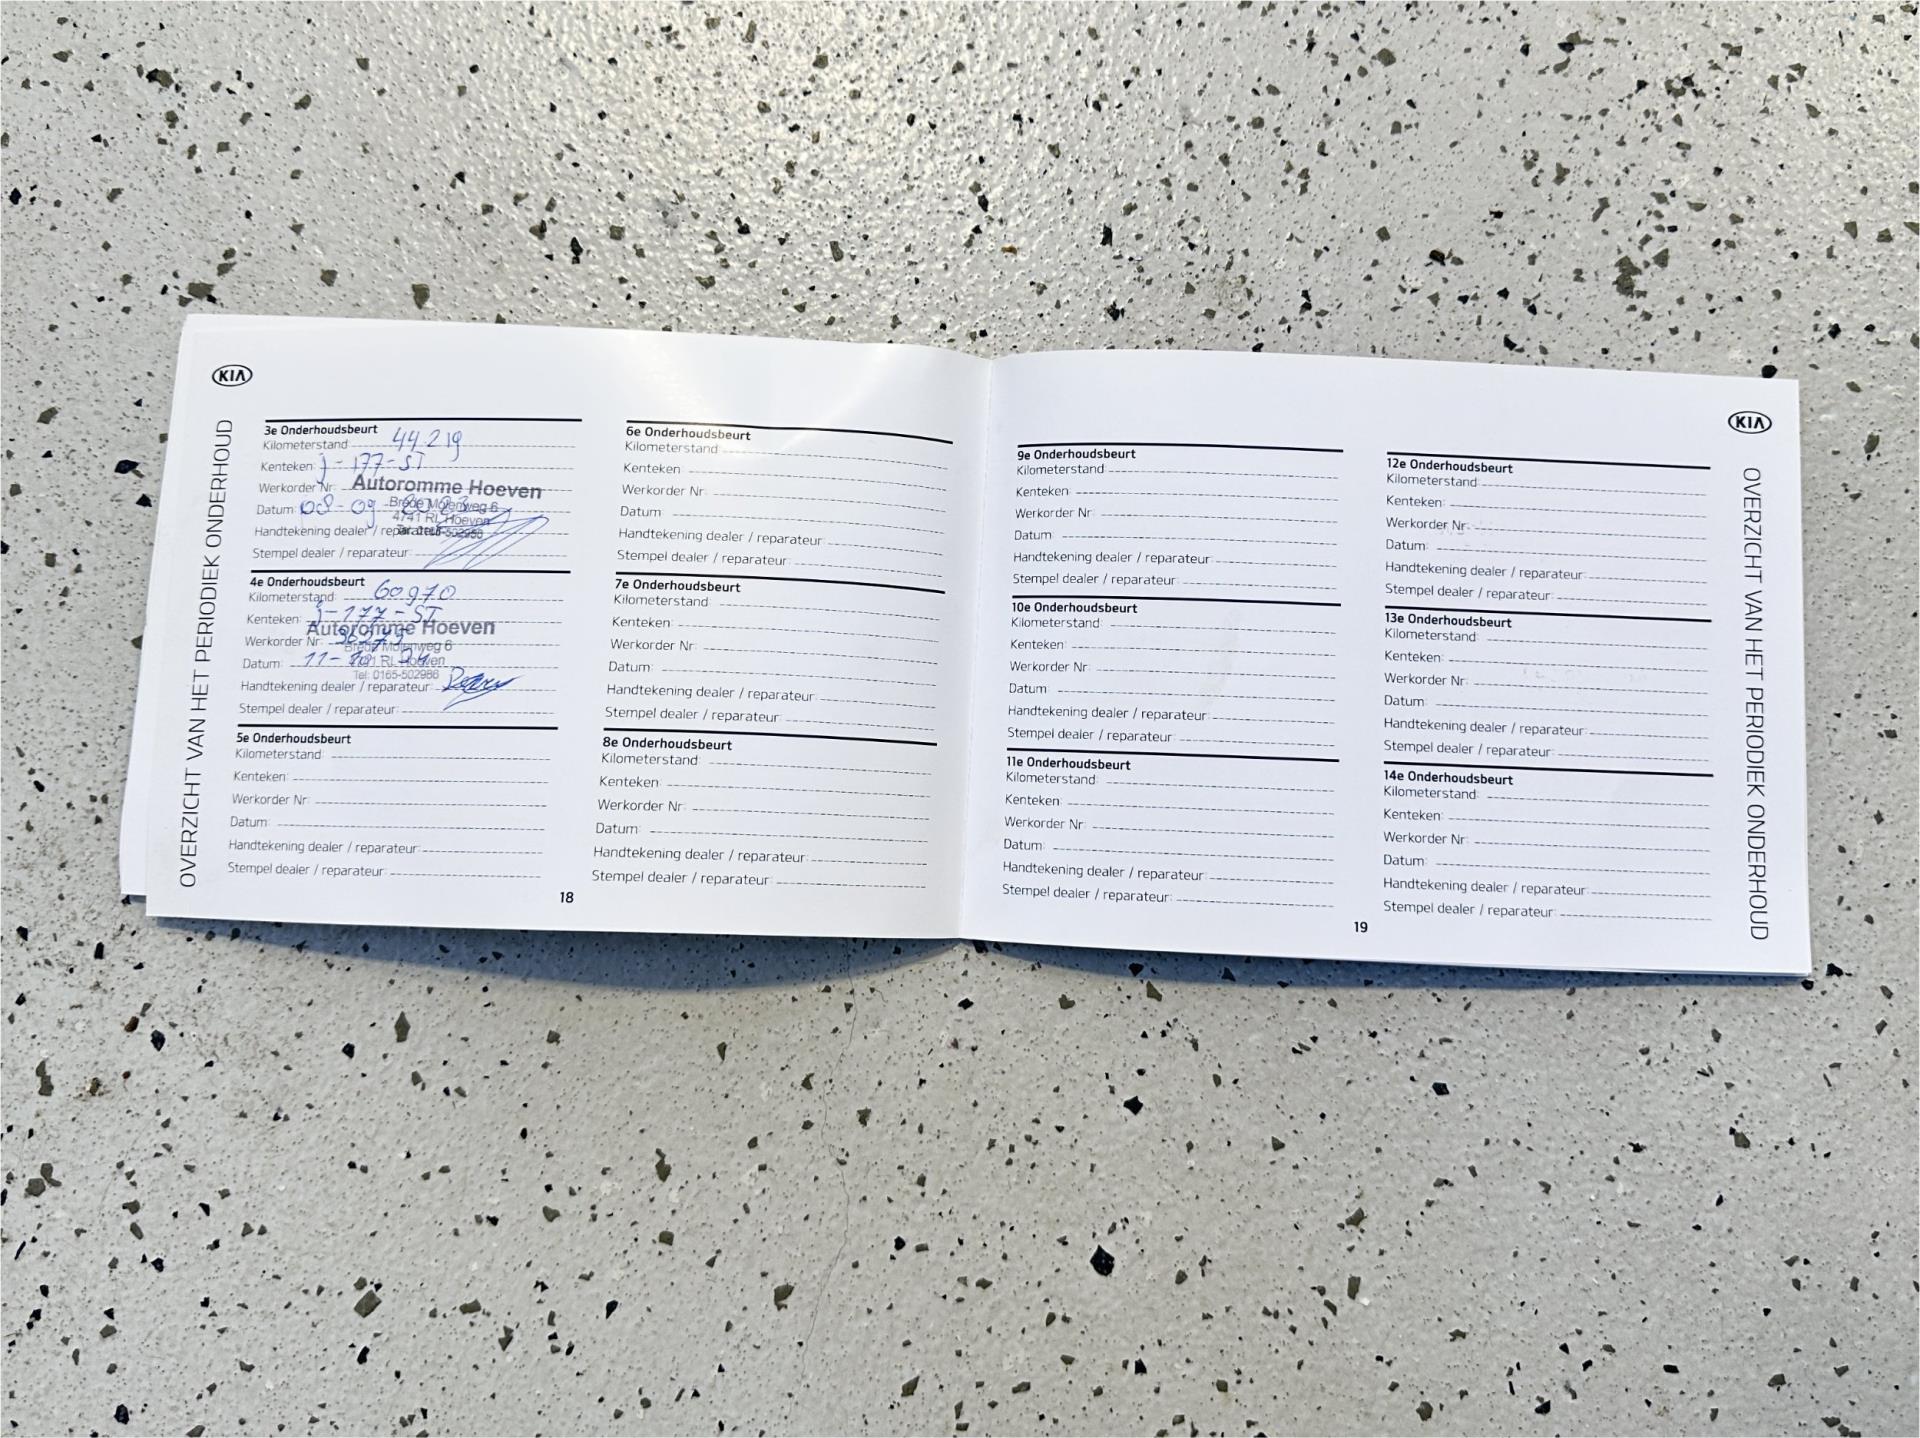 KIA
OVERZICHT VAN HET PERIODIEK ONDERHOUD
3e Onderhoudsbeurt
Kilometerstand 44219
Kenteken: J-177-ST
Werkorder Nr:
Autoromme Hoeven
Brede Molenweg 6
4741 RL Hoeven
Tel: 0165-502986
Datum: 08-09-2023
Handtekening dealer / reparateur:
Stempel dealer / reparateur:
4e Onderhoudsbeurt
Kilometerstand: 60970
Kenteken: J-177-ST
Autoromme Hoeven
Werkorder Nr: 36275
Brede Molenweg 6
4741 RL Hoeven
Datum: 11-10
Tel: 0165-502986
Handtekening dealer / reparateur:
Stempel dealer / reparateur:
5e Onderhoudsbeurt
Kilometerstand:
Kenteken:
Werkorder Nr:
Datum:
Handtekening dealer / reparateur:
Stempel dealer / reparateur:
6e Onderhoudsbeurt
Kilometerstand:
Kenteken:
Werkorder Nr:
Datum:
Handtekening dealer / reparateur:
Stempel dealer / reparateur:
7e Onderhoudsbeurt
Kilometerstand:
Kenteken:
Werkorder Nr:
Datum:
Handtekening dealer / reparateur:
Stempel dealer / reparateur:
8e Onderhoudsbeurt
Kilometerstand:
Kenteken:
Werkorder Nr:
Datum:
Handtekening dealer / reparateur:
Stempel dealer / reparateur:
18
9e Onderhoudsbeurt
Kilometerstand:
Kenteken:
Werkorder Nr:
Datum:
Handtekening dealer / reparateur:
Stempel dealer / reparateur:
10e Onderhoudsbeurt
Kilometerstand:
Kenteken:
Werkorder Nr:
Datum:
Handtekening dealer / reparateur:
Stempel dealer / reparateur:
11e Onderhoudsbeurt
Kilometerstand:
Kenteken:
Werkorder Nr:
Datum:
Handtekening dealer / reparateur:
Stempel dealer / reparateur:
12e Onderhoudsbeurt
Kilometerstand:
Kenteken:
Werkorder Nr:
Datum:
Handtekening dealer / reparateur:
Stempel dealer / reparateur:
13e Onderhoudsbeurt
Kilometerstand:
Kenteken:
Werkorder Nr:
Datum:
Handtekening dealer / reparateur:
Stempel dealer / reparateur:
14e Onderhoudsbeurt
Kilometerstand:
Kenteken:
Werkorder Nr:
Datum:
Handtekening dealer / reparateur:
Stempel dealer / reparateur:
19
KIA
OVERZICHT VAN HET PERIODIEK ONDERHOUD